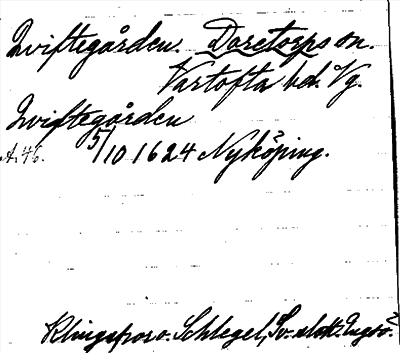 Qviftegården. Doretorps sn.
Vartofta hd. Vg.
Qviftegården
A. 46. 5/10 1624 Nyköping.
Klingspor o. Schlegel, Sv. slott.